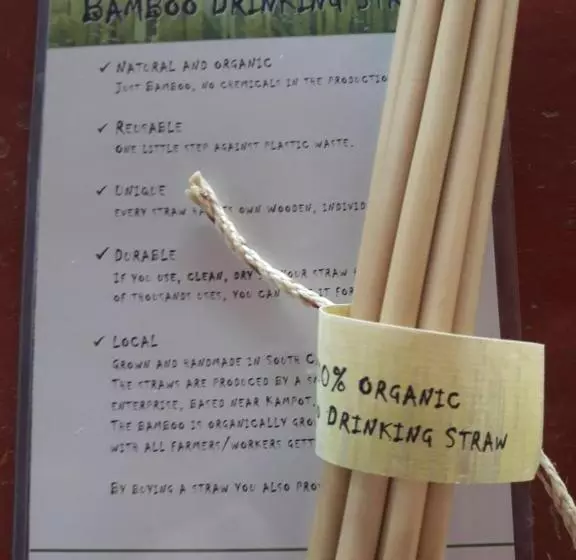 BAMBOO DRINKING STR
✓ NATURAL AND ORGANIC
JUST BAMBOO, NO CHEMICALS IN THE PRODUCTIO
✓ REUSABLE
ONE LITTLE STEP AGAINST PLASTIC WASTE.
✓ UNIQUE
EVERY STRAW HA TS OWN WOODEN, INDIVID
✓ DURABLE
IF YOU USE, CLEAN, DRY YOUR STRAW
OF THOUSANDS USES, YOU CAN IT FOR
✓ LOCAL
GROWN AND HANDMADE IN SOUTH C
THE STRAWS ARE PRODUCED BY A
ENTERPRISE, BASED NEAR KAMPOT,
THE BAMBOO IS ORGANICALLY GRO
WITH ALL FARMERS/WORKERS GETT
BY BUYING A STRAW YOU ALSO PRO
0% ORGANIC
DRINKING STRAW